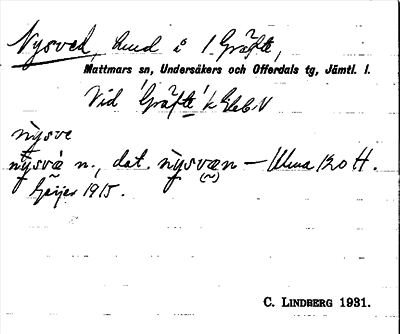 Nysved, hmd i 1 Gräfte,
Mattmars sn, Undersåkers och Offerdals tg, Jämtl. l.
Vid Gräfte k
nysve
nysvà n., dat. nysvæn –
Geijer 1915.
C. LINDBERG 1931.